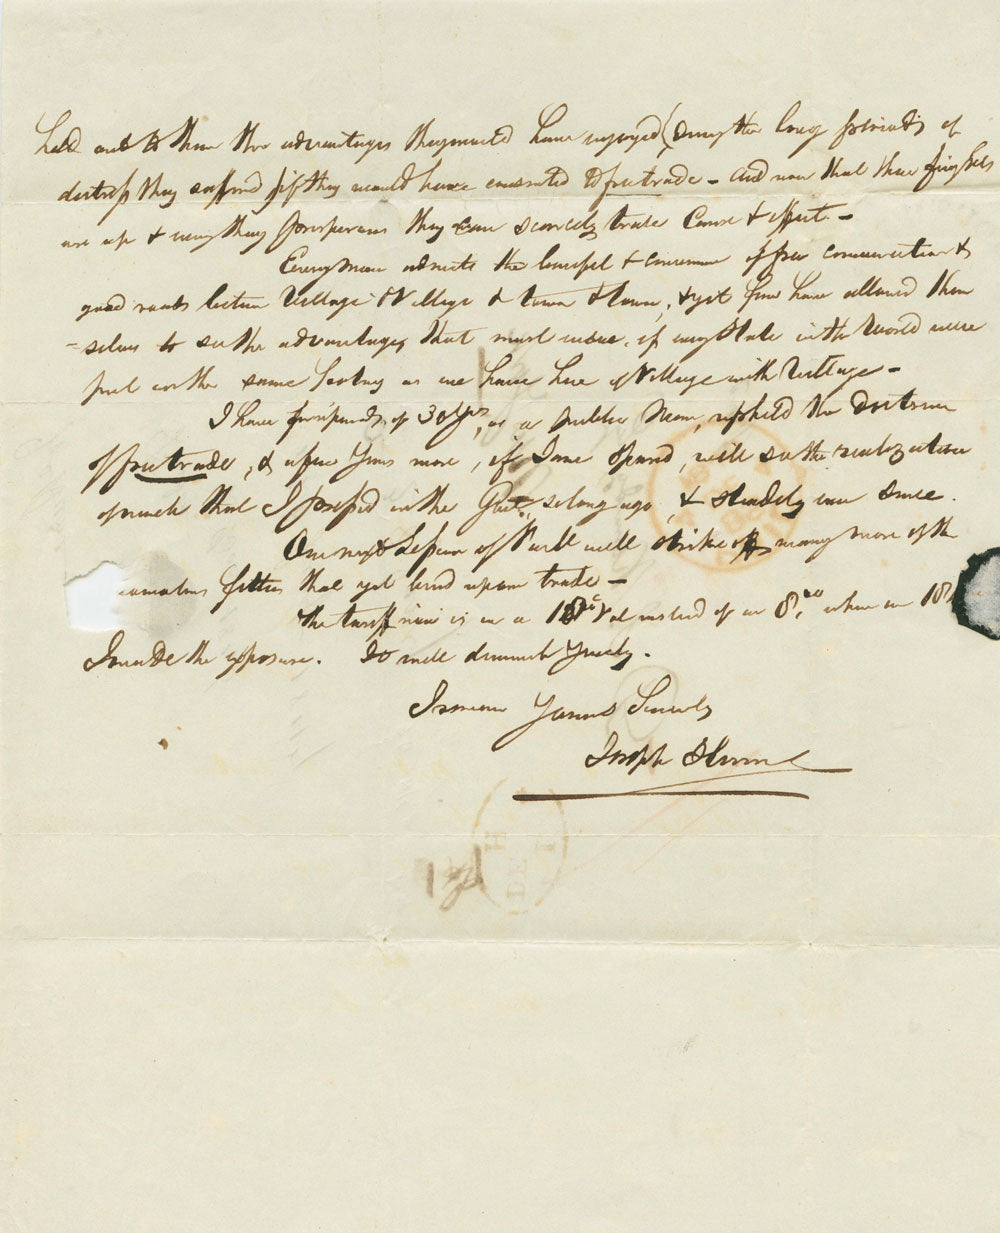 held out to them the advantages they would have enjoyed (during the long periods of
distress they suffered) if they would have consented to free trade - And now that these
are up & every thing prosperous they can scarcely trace Cause & effect. -
Every man admits the benefit & convenience of free communication &
good roads between Village & Village & town & town, & yet few have allowed them
-selves to see the advantages that must ensue, if every State in the World were
put on the same footing as we have here of Village with Village -
I have for upwards of 30 Yrs, as a public Man, upheld the doctrine
of free trade, & a few Years more, if I am Spared, will see the realization
of much that I professed in the so long ago, & steadily ever since.
One next Session of Parlt will strike off many more of the
fetters that yet bind upon trade -
The tariff now is in a 12o Vol instead of an 8vo when in 18
I made the exposure. It will diminish Yearly.
I remain Yours Sincerely
Joseph Hume
H
DE